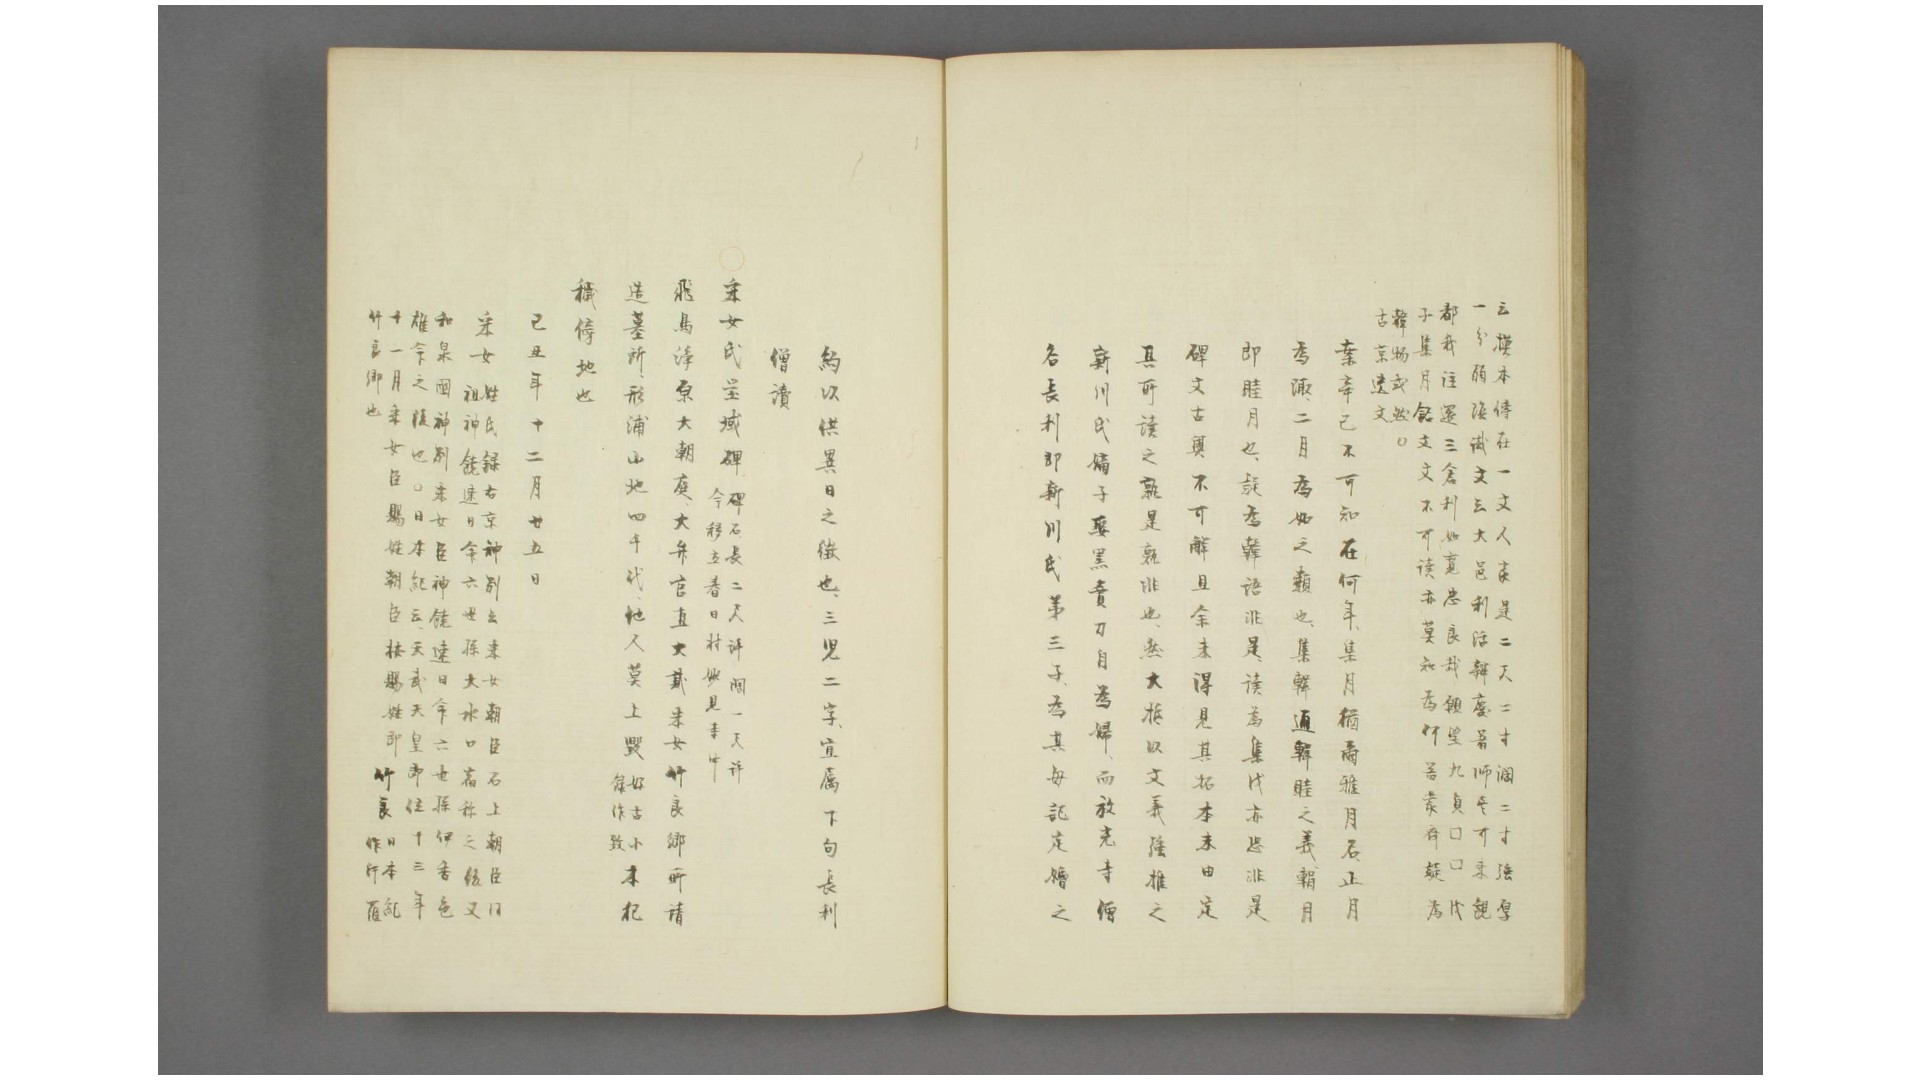 云摸本傳在一文人家是二尺二寸濶二寸強厚
一分弱落識文云大邑利活辨慶著師
都我往還三倉利如寛忠良哉願望九貞口口代
子集月銘文文不可讀亦莫知為何蒙齋疑為
韓物或然〇
古京遺文
案辛己不可知在何年、集月猶爾雅月名正月
為陬、二月為如之類也、集韓通韓睦之義、輯月
即睦月也、疑為韓語非是、讀為集代亦恐非是
碑文古奧不可解且余未得見其拓本未由定
其可讀之孰是孰非也、然大抵以文義強推之
新川氏婦子娶黒賣刀自為婦、而放光寺僧
名長利即新川氏第三子、為其母記定婚之
約以供異日之徴也、三児二字、宜屬下句長利
僧讀
采女氏塋域碑 碑石長二尺許濶一尺許
今移立春日村妙見寺中
飛鳥淨原大朝庭、大弁官直大貳采女竹良卿所請
造墓所、形浦山地四千代、他人莫上毀 好古小
録作致 木犯
穢傍地也
己丑年十二月廿五日
采女 姓氏録右京神別云采女朝臣石上朝臣同
祖神饒速日命六世孫大水口宿祢之後又
和泉國神別采女臣神饒速日命六世孫伊香色
雄命之後也〇日本紀云、天武天皇即位十三年
十一月采女臣賜姓朝臣按賜姓即 竹良 日本紀
作竹羅
竹良卿也